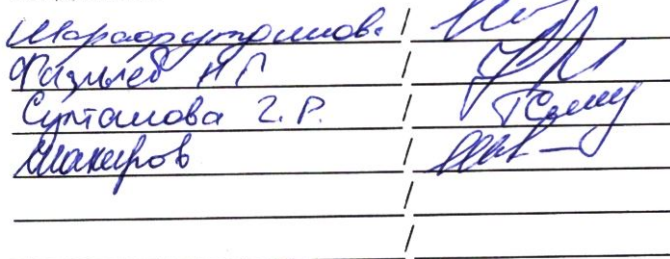 Шарафутдинов. /
Фазылев Н Г /
Султанова Г. Р. /
Шакиров /
/
/